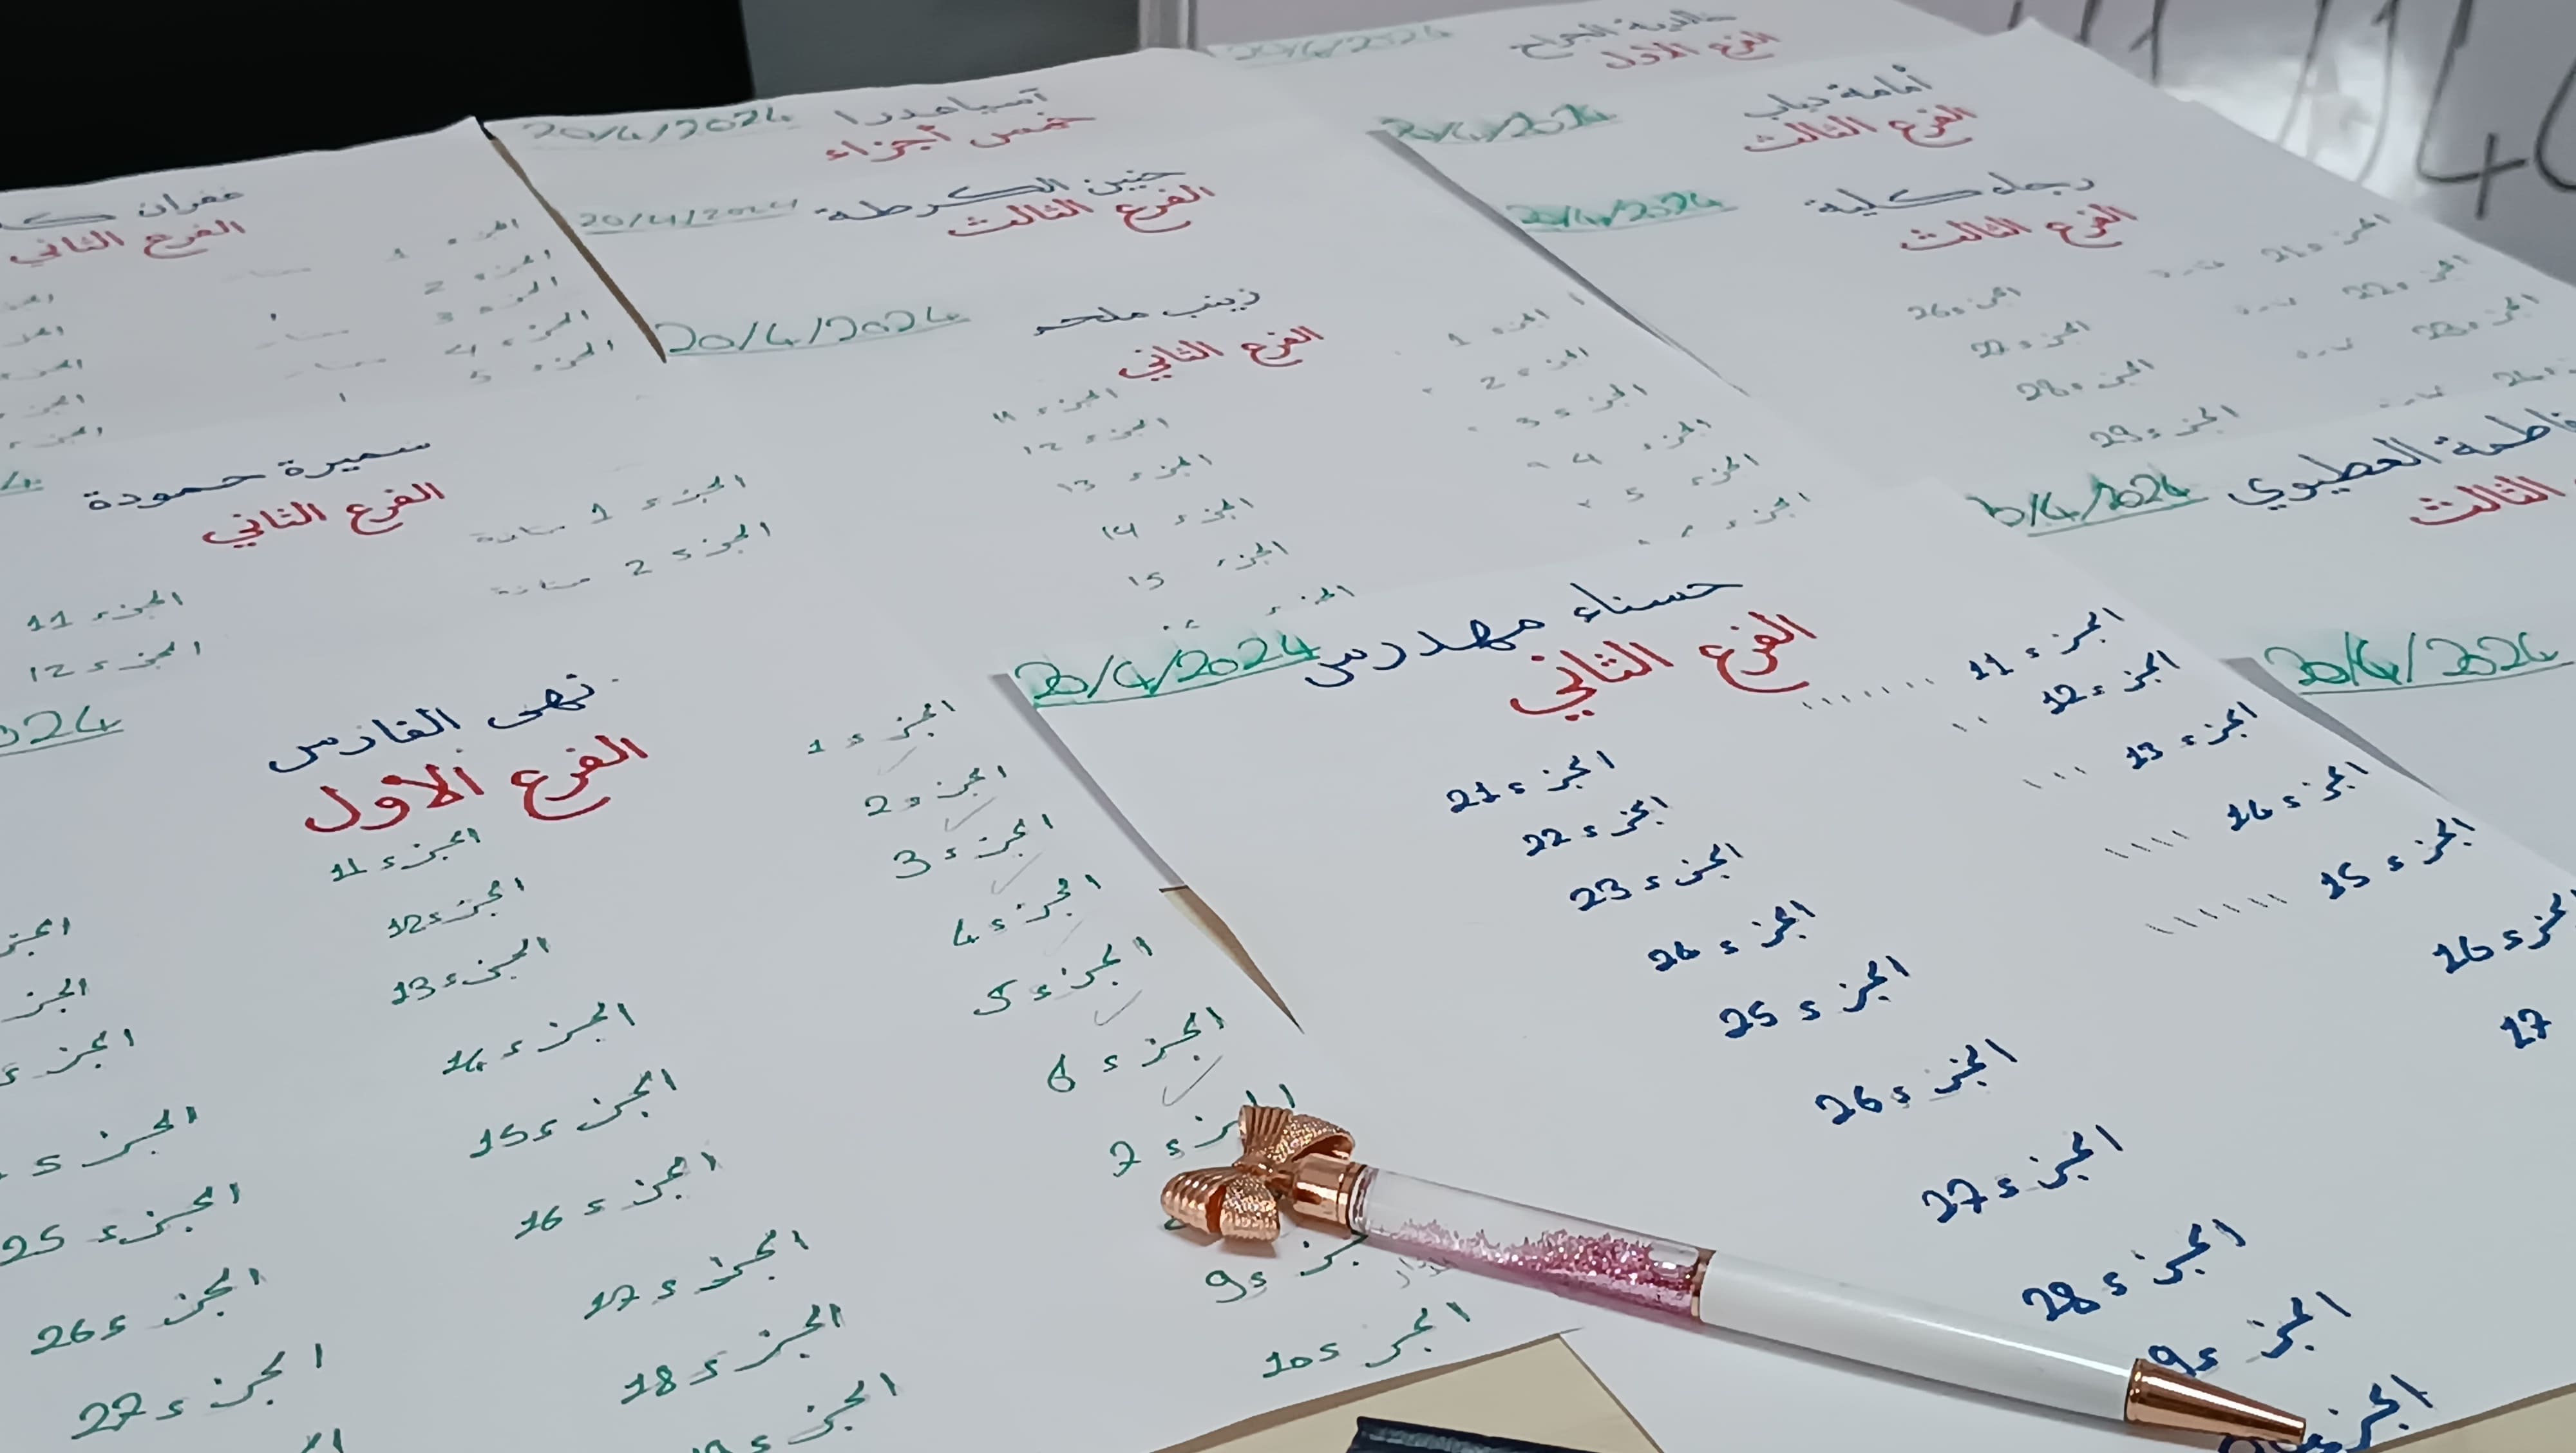 الفرع الاول
20/4/2024
أمامة دياب
الفرع الثالث
20/4/2024
رجاء كلية
الفرع الثالث
20/4/2024
الجزء 21
الجزء 22
الجزء 23
الجزء 26
الجزء 27
الجزء 28
الجزء 29
فاطمة العطيوي
الثالث
20/4/2024
20/4/2024
خمس أجزاء
20/4/2024
حنين الكرطة
الفرع الثالث
20/4/2024
زينب ملحم
الفرع الثاني
20/4/2024
الجزء 1
الجزء 2
الجزء 3
الجزء 4
الجزء 5
الجزء 11
الجزء 12
الجزء 13
الجزء 14
الجزء 15
غفران
الفرع الثاني
الجزء 1
الجزء 2
الجزء 3
الجزء 4
الجزء 5
سميرة حمودة
الفرع الثاني
الجزء 1
الجزء 2
الجزء 11
الجزء 12
حسناء مهدرس
الفرع الثاني
20/4/2024
الجزء 11
الجزء 12
الجزء 13
الجزء 14
الجزء 15
الجزء 16
17
الجزء 21
الجزء 22
الجزء 23
الجزء 24
الجزء 25
الجزء 26
الجزء 27
الجزء 28
نهى الفارس
الفرع الأول
024
الجزء 1
الجزء 2
الجزء 3
الجزء 4
الجزء 5
الجزء 6
الجزء 7
9
الجزء 10
الجزء 11
الجزء 12
الجزء 13
الجزء 14
الجزء 15
الجزء 16
الجزء 17
الجزء 18
الجزء 25
الجزء 26
الجزء 27